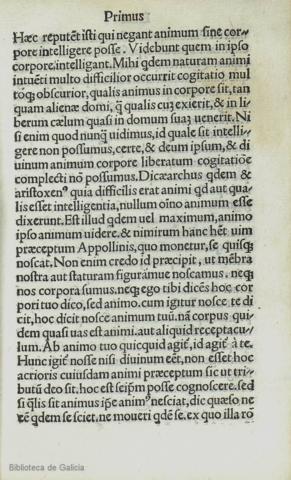 Primus
Hæc reputēt isti qui negant animum sine cor-
pore intelligere posse. Videbunt quem in ipso
corpore, intelligant. Mihi qdem naturam animi
intuēti multo difficilior occurrit cogitatio mul
toq; obscurior, qualis animus in corpore sit, tan
quam alienæ domi, q̃ qualis cū exierit, & in li
berum cælum quasi in domum suaʒ uenerit. Ni
si enim quod nunq̃ uidimus, id quale sit intelli-
gere non possumus, certe, & deum ipsum, & di
uinum animum corpore liberatum cogitatiōe
complecti nō possumus. Dicæarchus qdem &
aristoxen⁹ quia difficilis erat animi qd aut qua-
lis esset intelligentia, nullum oīno animum esse
dixerunt. Est illud qdem uel maximum, animo
ipso animum uidere. & nimirum hanc hēt uim
præceptum Appollinis, quo monetur, se quisq;
noscat. Non enim credo id præcipit, ut mēbra
nostra aut staturam figuramue noscamus. neq;
nos corpora sumus. neq; ego tibi dicēs hoc cor
pori tuo dico, sed animo. cum igitur nosce te di
cit, hoc dicit nosce animum tuū. nā corpus qui-
dem quasi uas est animi. aut aliquid receptacu-
lum. Ab animo tuo quicquid agit̃, id agit̃ à te.
Hunc igit̃ nosse nisi diuinum eēt, non esset hoc
acrioris cuiusdam animi præceptum sic ut tri-
butū deo sit. hoc est seip̄m posse cognoscere. sed
si q̃lis sit animus ip̄e anim⁹ nesciat, dic quæso ne
qdem se sciet, ne moueri qdē se. ex quo illa rō
Biblioteca de Galicia